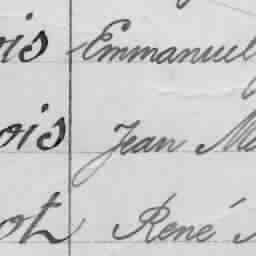 ois Emmanuel
ois Jean M
ot René